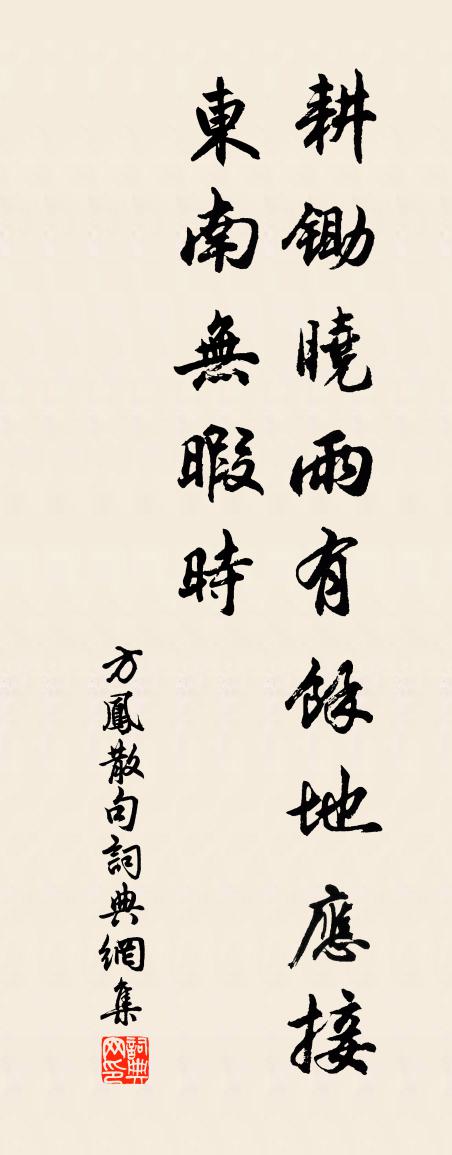 耕鋤曉雨有餘地應接
東南無暇時
方鳳散句詞典網集
詞典网印